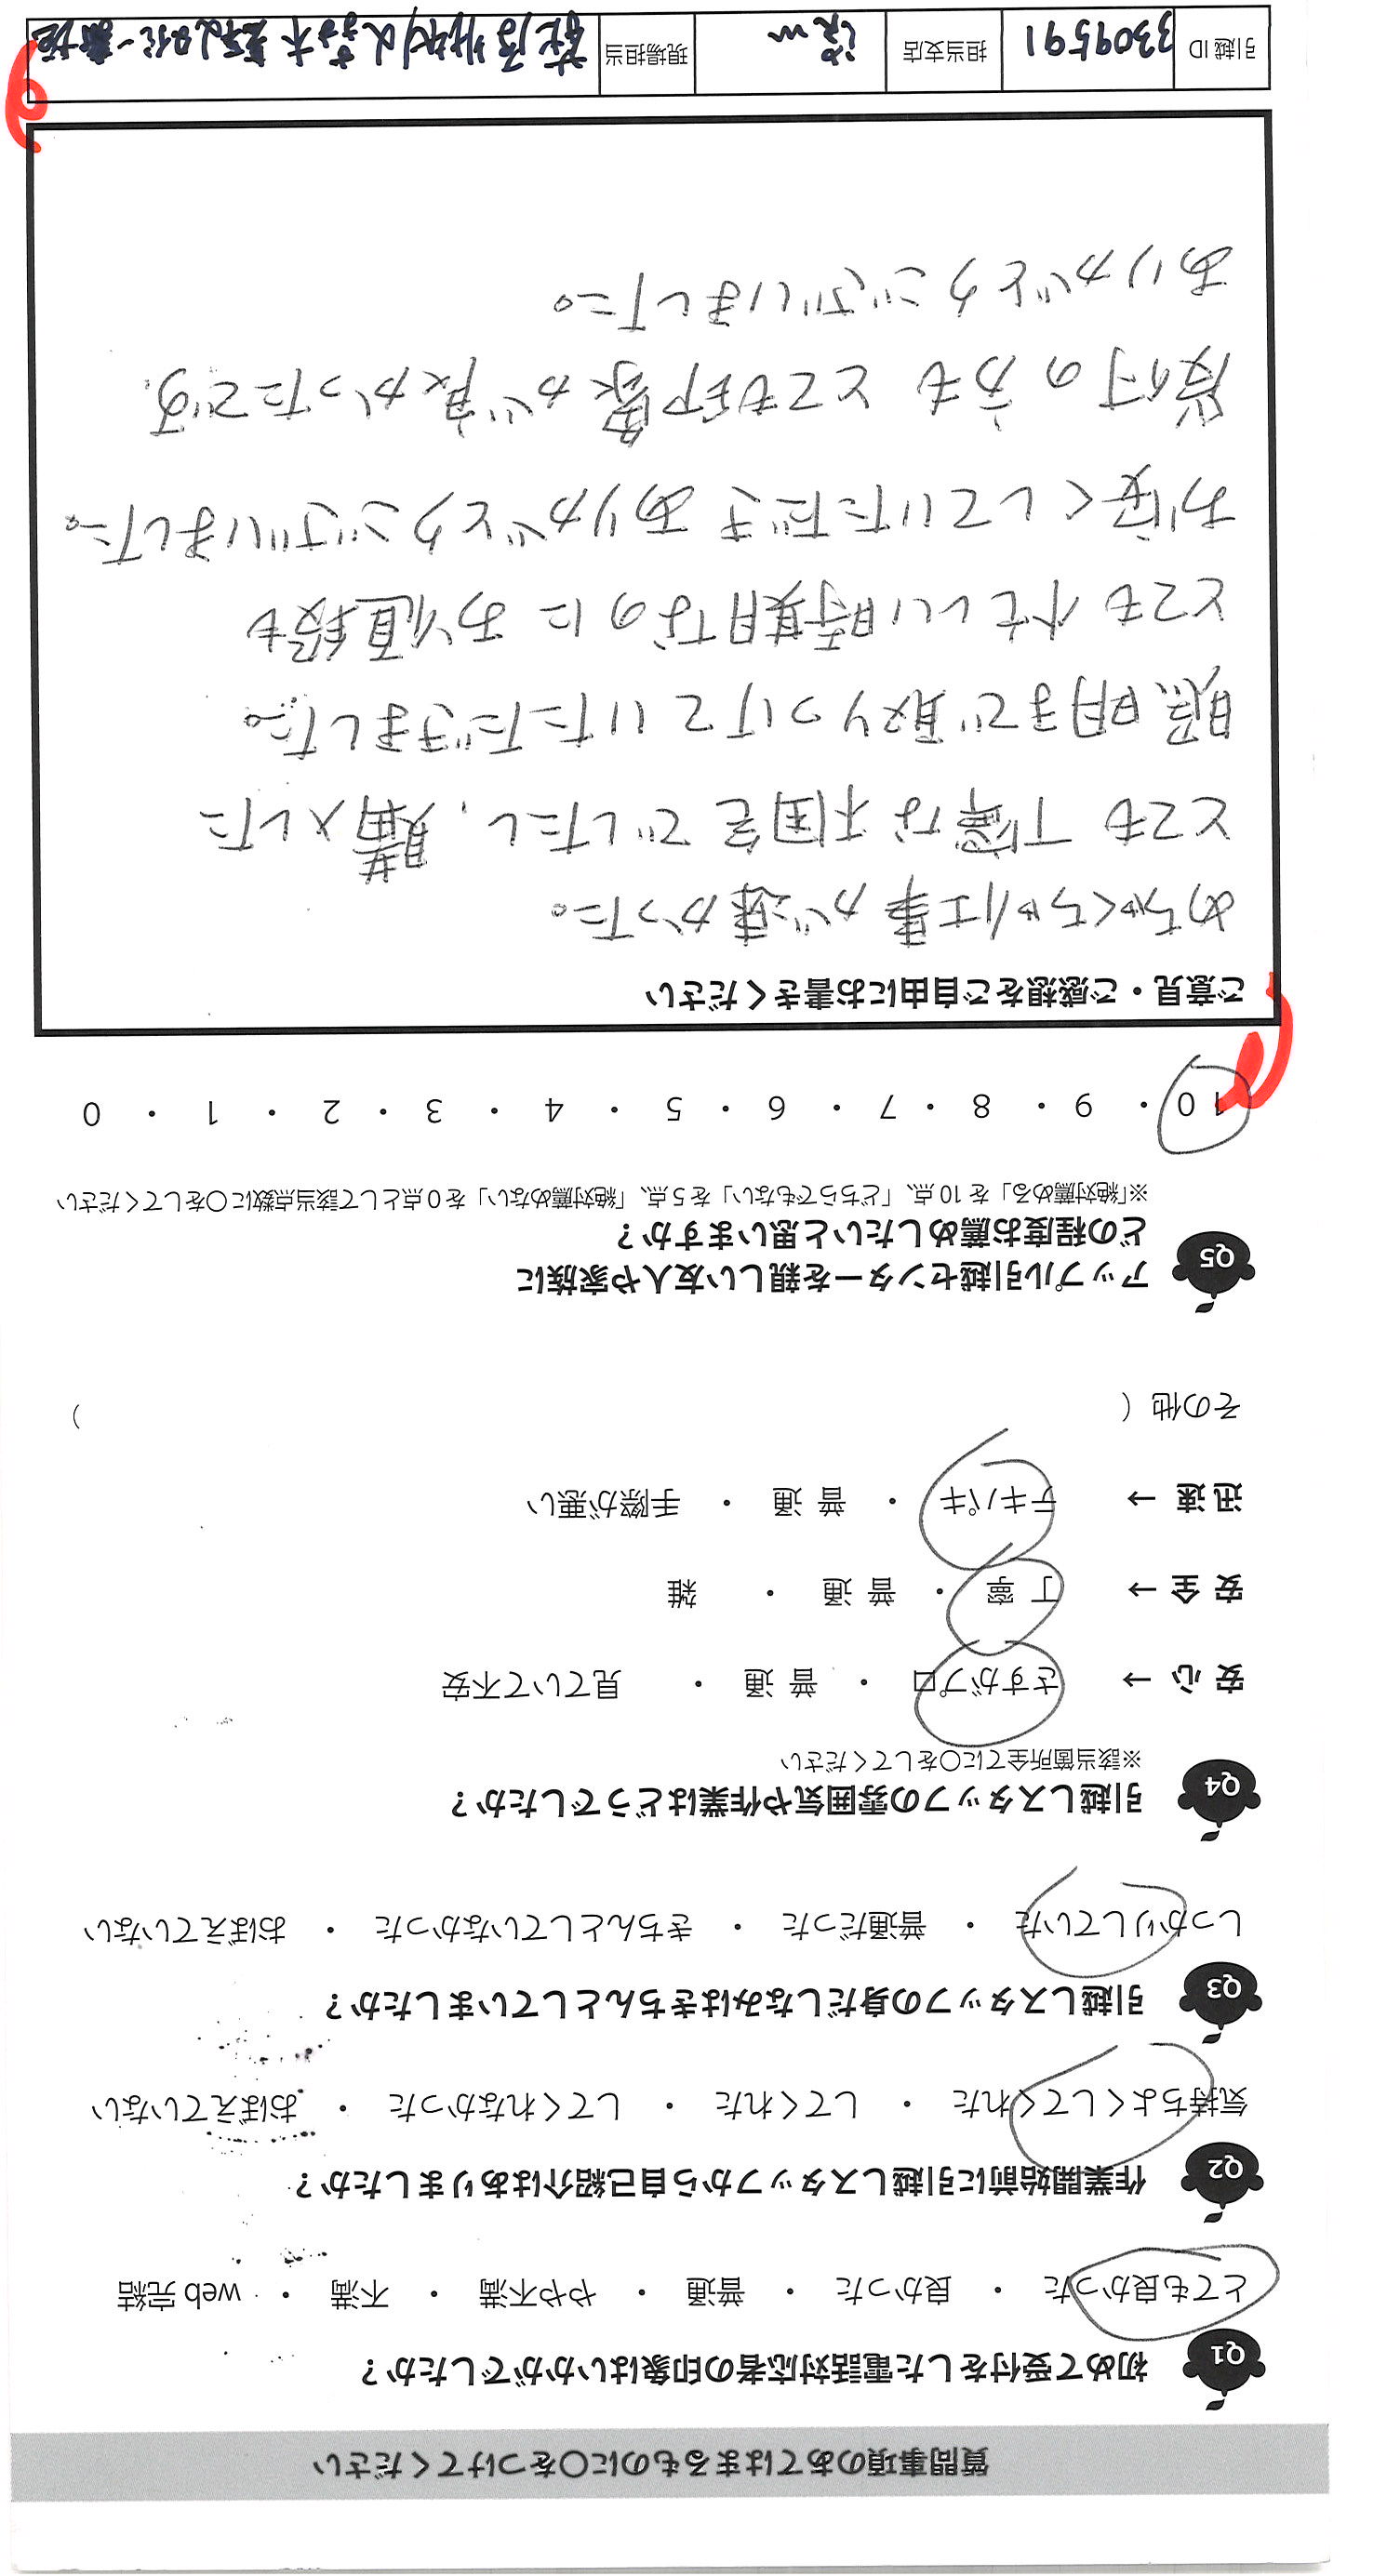 質問事項のあてはまるものに〇をつけてください
Q1 初めて受付をした電話対応者の印象はいかがでしたか？
とても良かった ・ 良かった ・ 普通 ・ やや不満 ・ 不満 ・ web 完結
Q2 作業開始前に引越しスタッフから自己紹介はありましたか？
気持ちよくしてくれた ・ してくれた ・ してくれなかった ・ おぼえていない
Q3 引越しスタッフの身だしなみはきちんとしていましたか？
しっかりしていた ・ 普通だった ・ きちんとしていなかった ・ おぼえていない
Q4 引越しスタッフの雰囲気や作業はどうでしたか？
※該当箇所全てに〇をしてください
安 心 → さすがプロ ・ 普 通 ・ 見ていて不安
安 全 → 丁 寧 ・ 普 通 ・ 雑
迅 速 → テキパキ ・ 普 通 ・ 手際が悪い
その他（ ）
Q5 アップル引越センターを親しい友人や家族に
どの程度お薦めしたいと思いますか？
※「絶対薦める」を 10 点、「どちらでもない」を 5 点、「絶対薦めない」を 0 点として該当点数に〇をしてください
10 ・ 9 ・ 8 ・ 7 ・ 6 ・ 5 ・ 4 ・ 3 ・ 2 ・ 1 ・ 0
ご意見・ご感想をご自由にお書きください
めちゃくちゃ仕事が速かった。
とても丁寧な梱包でしたし、購入した
照明まで取りつけていただきました。
とても忙しい時期なのにお値段も
お安くしていただきありがとうございました。
受付の方もとても印象が良かったです。
ありがとうございました。
引越 ID 3309591 担当支店 現場担当